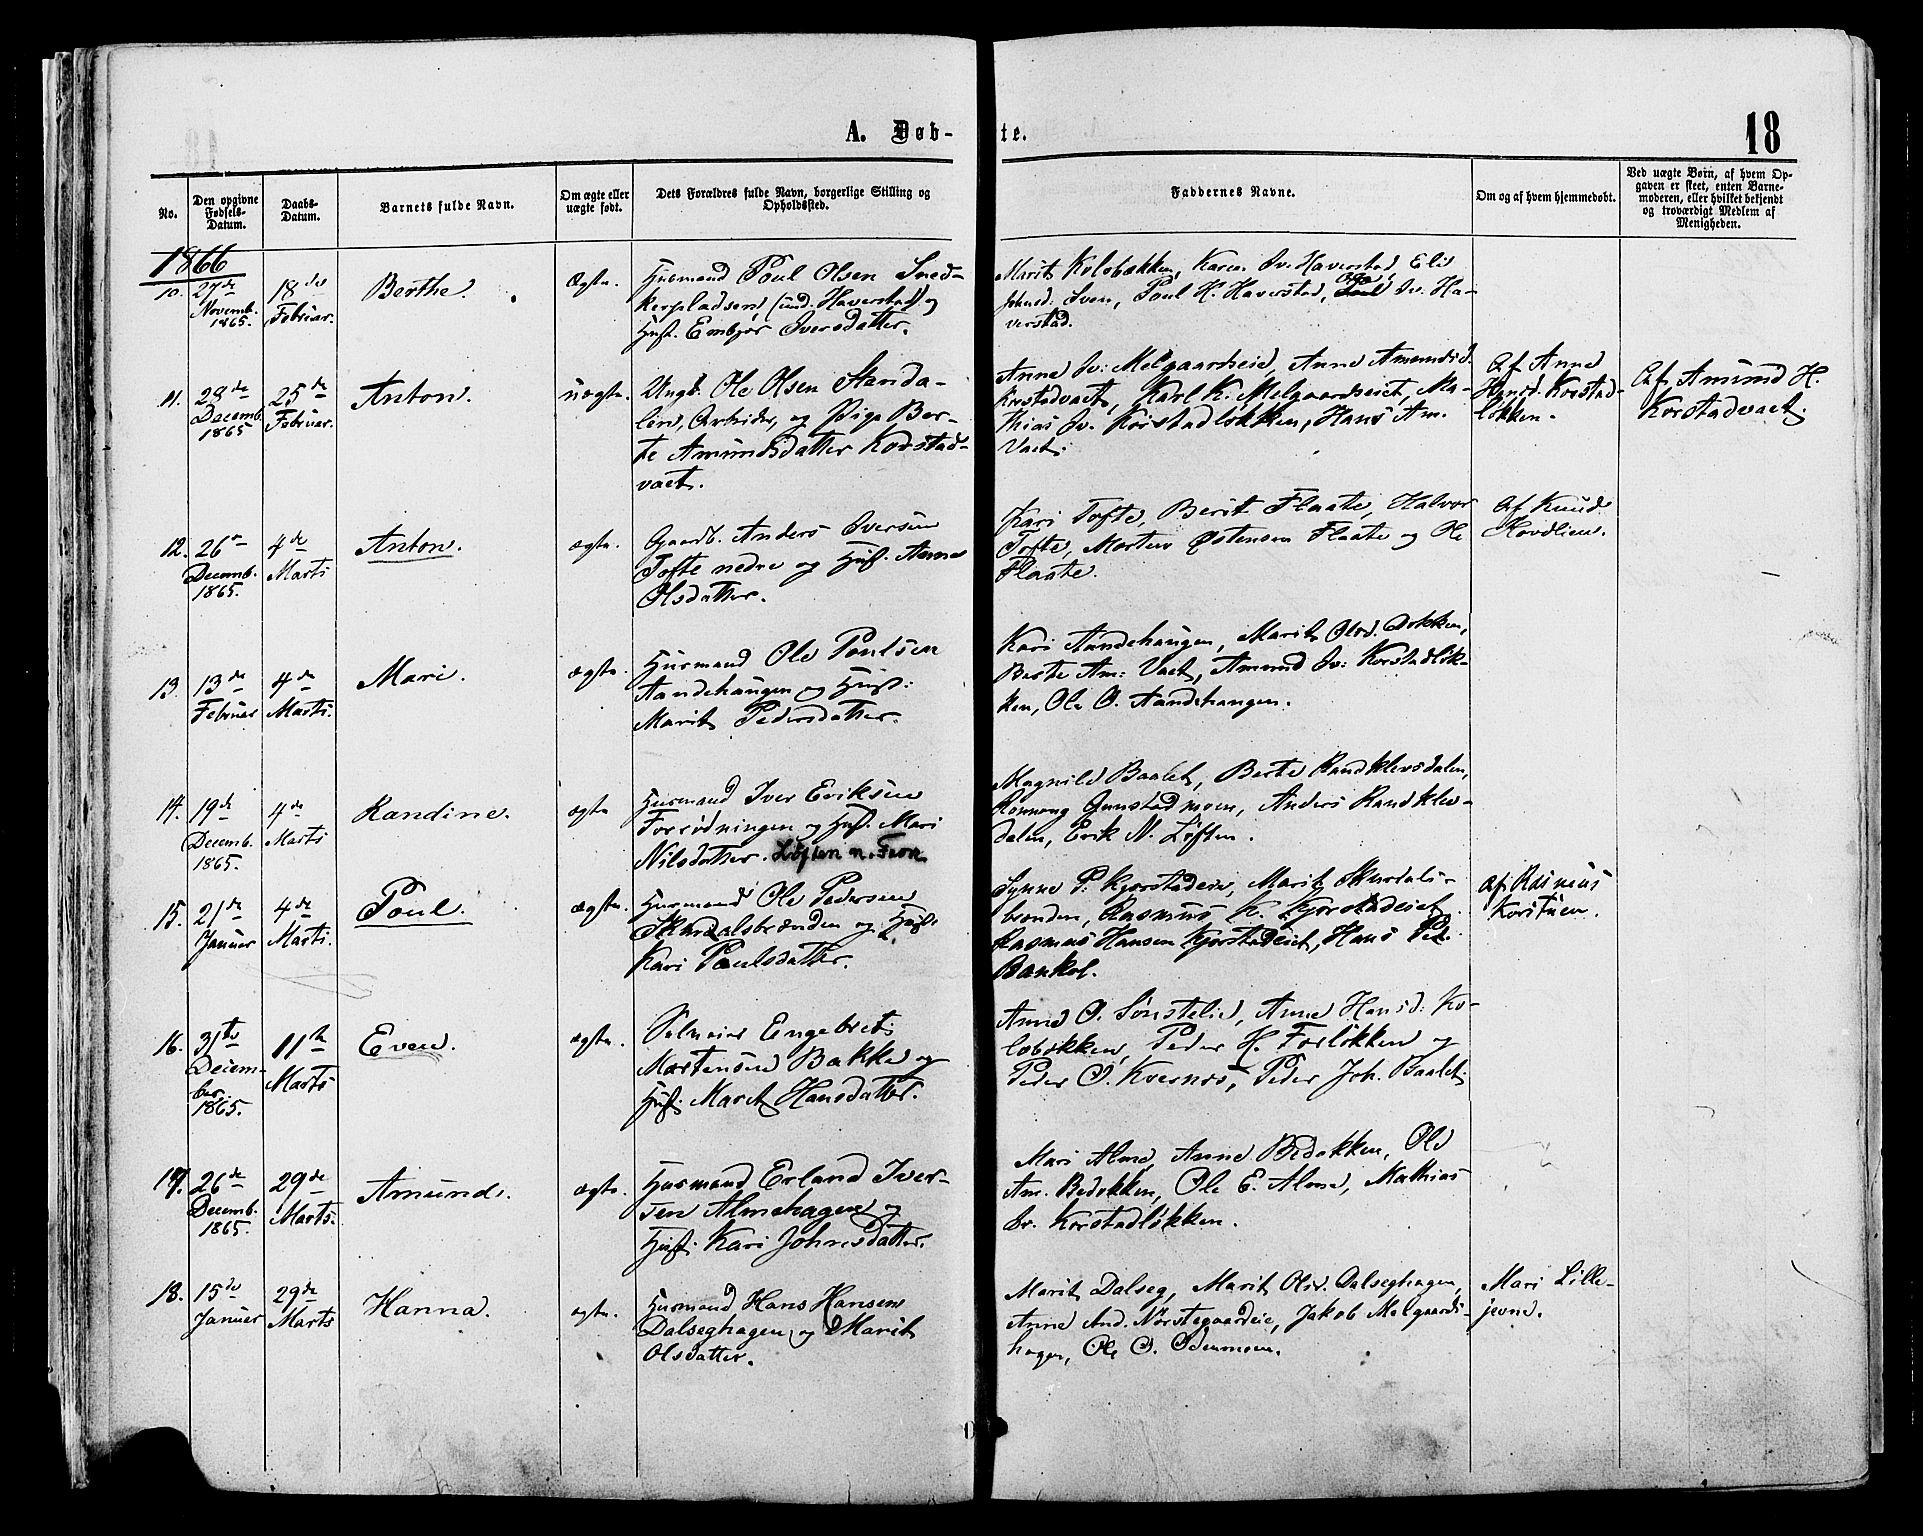 A. Døb-
te.
18
No.
Den opgivne
Fødsels-
Datum.
Daabs-
Datum.
Barnets fulde Navn.
Om ægte eller
uægte født.
Dets Forældres fulde Navn, borgerlige Stilling og
Opholdssted.
Faddernes Navne.
Om og af hvem hjemmedøbt.
Ved uægte Børn, af hvem Op-
gaven er skeet, enten Barne-
moderen, eller hvilket bekjendt
og troværdigt Medlem af
Menigheden.
1866
10.
27de
Novemb.
1865.
18de
Februar.
Berthe.
Ægte.
Husmand Poul Olsen Sned-
kerpladsen, (und. Haverstad) og
Hust. Embjør Iversdatter.
Marit Kolobækken, Karen Iv. Haverstad, Eli
Sven, Poul H. Haverstad, Iv. Ha-
verstad.
11.
28de
Decemb.
1865
25de
Februar.
Anton.
uægte.
Ungk. Ole Olsen Standa-
len, Arbeider, og Pige Ber-
te Amundsdatter Korstad-
vaet.
Anne Iv: Melgaardseie, Anne Amundsd.
Korstadvaet, Karl K. Melgaardseiet, Ma-
thias Iv. Korstadløkken, Hans Am.
Vaet.
Af Anne
Hansd. Korstad-
løkken.
Af Amund H.
Korstadvaet.
12.
26de
Decemb.
1865.
4de
Marts
Anton.
ægte.
Gaardb. Anders Iversen
Tofte nedre og Hust. Anne
Olsdatter.
Kari Tofte, Berit Flaate, Halvor
Tofte, Morten Østensen Flaate og Ole
Flaate.
Af Knud
Hovdlien.
13.
13de
Februar
4de
Marts.
Mari.
ægte.
Husmand Ole Poulsen
Aandehaugen og Hust:
Marit Pedersdatter.
Kari Aandehaugen, Marit Olsd. Dokken,
Berte Am: Vaet, Amund Iv: Korstadløk-
ken, Ole O. Aandehaugen.
14.
19de
Decemb.
1865.
4de
Marts
Randine.
ægte
Husmand Iver Eriksen
Forrødningen og Hust. Mari
Nilsdatter. Løften n. Fron
Magnild Baalet, Berte Randklevsdalen,
Rønnaug Gunstadmoen, Anders Randklev-
dalen, Erik N. Løften.
15.
21de
Januar
4de
Marts.
Poul.
ægte.
Husmand Ole Pedersen
Skurdalsbrænden og Hust:
Kari Poulsdatter.
Synne P: Kjorstadeie, Marit Skurdals-
brænden, Rasmus K. Kjorstadeiet
Rasmus Hansen Kjorstadeiet, Hans Ped.
Bankol.
af Rasmus
Korstuen.
16.
31te
Decem-
ber.
1865.
11te
Marts
Even.
ægte.
Selveier Engebret
Mortensen Bakke og
Hust. Marit Hansdatter.
Anne O. Sønstelie, Anne Hansd: Ko-
lobækken, Peder H. Forløkken og
Peder O. Kvernos, Peder Joh. Baalet.
17.
26de
Decemb.
1865.
29de
Marts.
Amund.
ægte.
Husmand Erland Iver-
sen Almehagen og
Hust: Kari Johnsdatter.
Mari Alme, Anne Bedøkken, Ole
Am. Bedøkken, Ole E. Alme, Mathias
Iv. Korstadløkken.
18.
15de
Januar
29de
Marts
Hanna.
ægte.
Husmand Hans Hansen
Dalseghagen og Marit
Olsdatter.
Marit Dalseg, Marit Olsd. Dalseghagen,
Anne And. Nørstegaardeie, Jakob Melgaards-
hagen, Ole O. Odenmoen.
Mari Lille-
jevne.